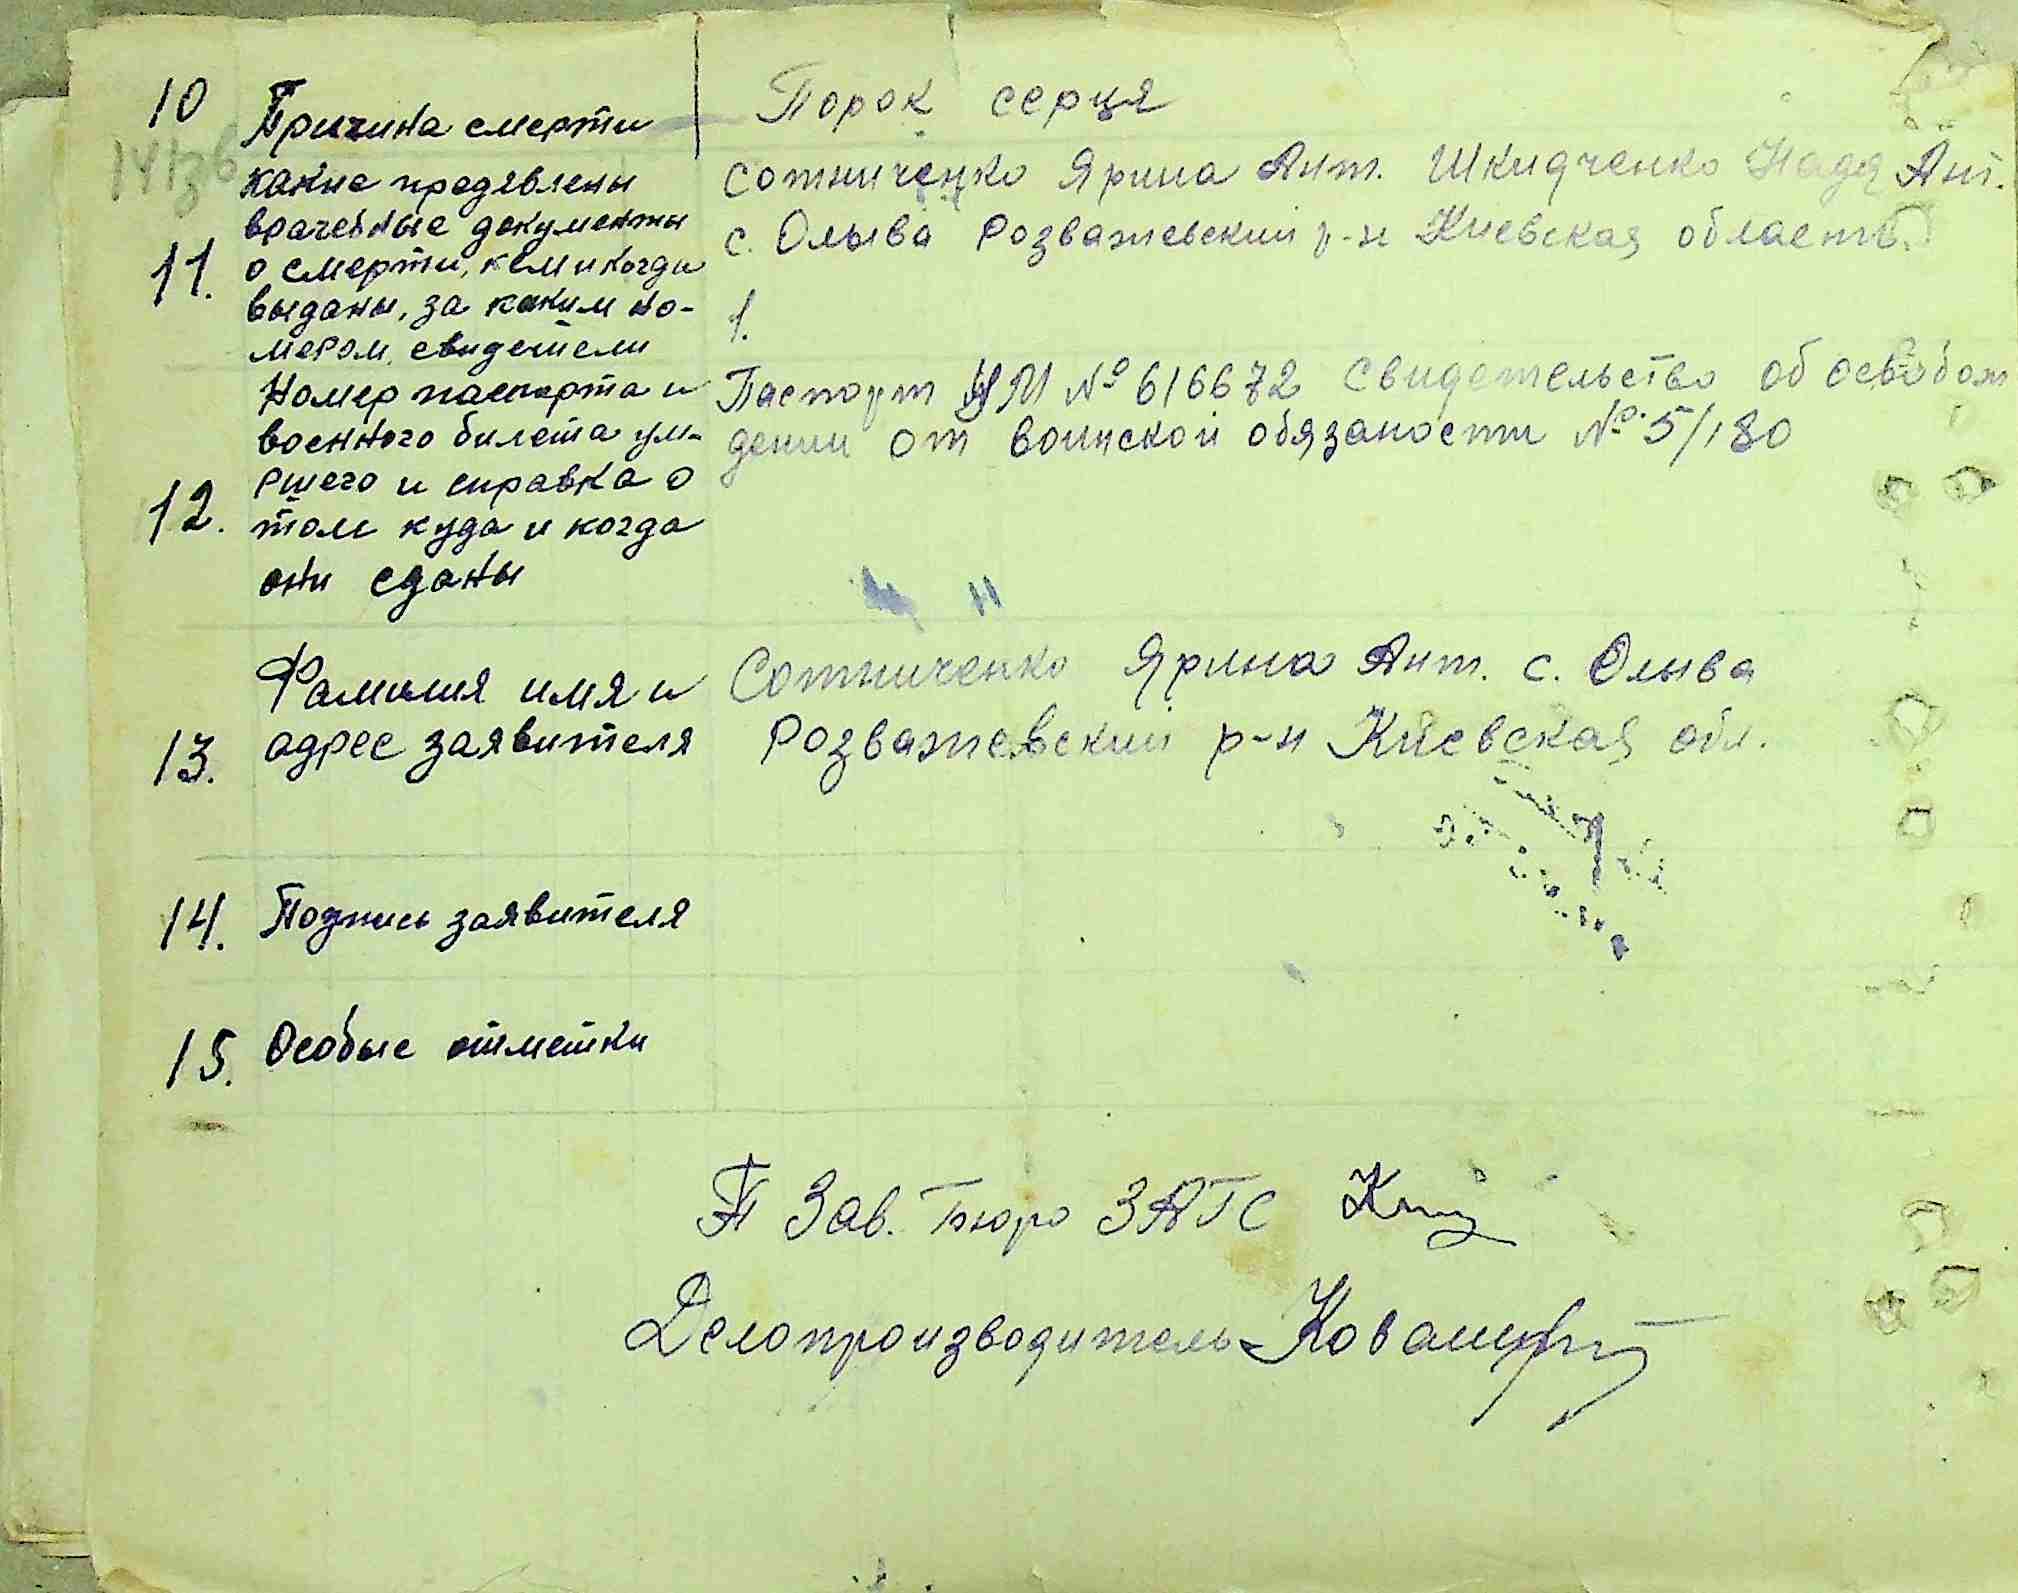 10 Причина смерти Порок серця
14 зв
какие предявлены Сотниченко Ярина Ант. Шкидченко Надя Ант.
врачебные документы с. Олыва Розважевский р-н Киевская область.
11. о смерти, кем и когда
выданы, за каким но- 1.
мером, свидетели
Номер паспорта и Паспорт № 616672 Свидетельство об освобож
военного билета ум- дении от воинской обязаности № 5/180
ршего и справка о
12. том куда и когда
они сданы
Фамилия имя и Сотниченко Ярина Ант. с. Олыва
13. адрес заявителя Розважевский р-н Киевская обл.
14. Подпись заявителя
15. Особые отметки
П Зав. Бюро ЗАГС
Делопроизводитель